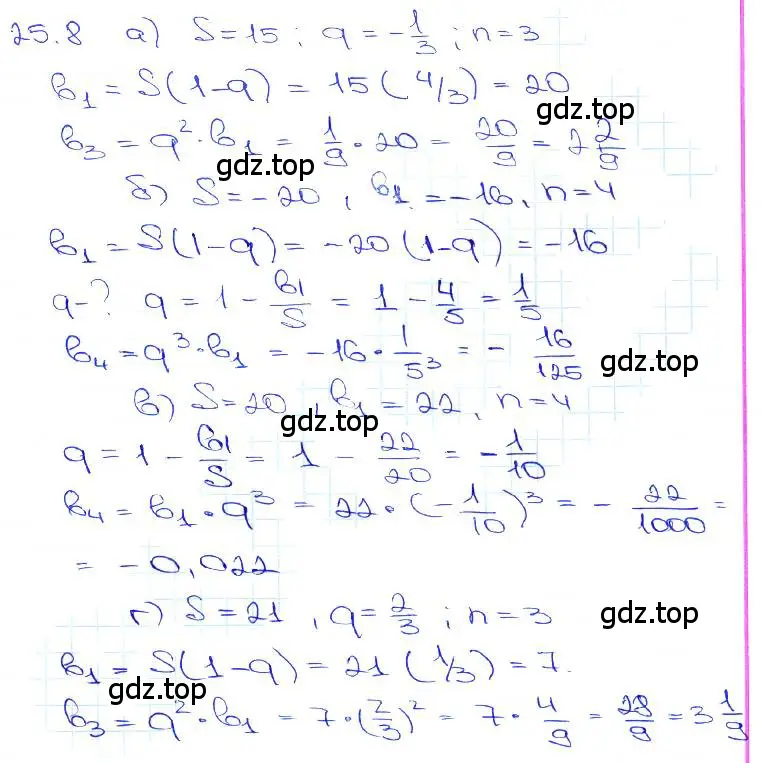 25.8 а) S=15; q=-1/3; n=3
b₁ = S(1-q) = 15(4/3) = 20
b₃ = q²·b₁ = 1/9·20 = 20/9 = 2 2/9
gdz.top
gdz.top
б) S=-20, b₁=-16, n=4
b₁ = S(1-q) = -20(1-q) = -16
q-? q = 1 - b₁/S = 1 - 4/5 = 1/5
b₄ = q³·b₁ = -16·1/5³ = -16/125
gdz.top
в) S=20, b₁=22, n=4
gdz.top
q = 1 - b₁/S = 1 - 22/20 = -1/10
b₄ = b₁·q³ = 22·(-1/10)³ = -22/1000 =
= -0,022
г) S=21, q=2/3; n=3
gdz.top
b₁ = S(1-q) = 21(1/3) = 7.
gdz.top
b₃ = q²·b₁ = 7·(2/3)² = 7·4/9 = 28/9 = 3 1/9